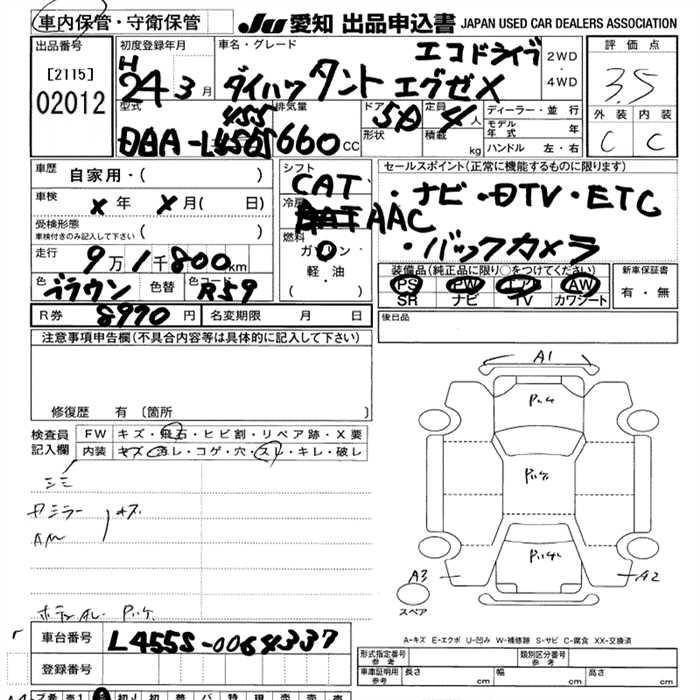 車内保管・守衛保管 JU 愛知 出品申込書 JAPAN USED CAR DEALERS ASSOCIATION
出品番号 初度登録年月 車名・グレード エコドライブ 2WD・4WD 評価点
[2115] H 24年 3月 ダイハツ タント エグゼX 3.5
02012 型式 455 排気量 ドア 5D 定員 4人 ディーラー・並行 外装 内装
DBA-L456S 660cc 形状 積載 kg モデル年式 年 C C
ハンドル 左・右
車歴 自家用・( ) シフト CAT セールスポイント(正常に機能するものに限ります)
車検 X年 X月( 日) 冷房 AAC ・ナビ・DTV・ETC
受検形態 車検付きのみ記入して下さい ( ) ・バックカメラ
走行 9万1千800km 燃料 ガソリン 軽・油 ( )
色 ブラウン 色替 色コード R59
装備品(純正品に限り○をつけてください) 新車保証書
PS PW エアB AW 有・無
SR ナビ TV カワシート
R券 8970円 名変期限 月 日 後日品
注意事項申告欄(不具合内容等は具体的に記入して下さい)
修復歴 有 〔箇所 〕
検査員記入欄 FW キズ・飛石・ヒビ割・リペア跡・X要
内装 キズ・汚レ・コゲ・穴・スレ・キレ・破レ
シミ
キズ
AW
A1
A3 A2
スペア
A-キズ E-エクボ U-凹み W-補修跡 S-サビ C-腐食 XX-交換済
車台番号 L455S-0064337
登録番号
形式指定番号 参考 類別区分番号 参考
車庫証明用 参考 長さ cm 幅 cm 高さ cm